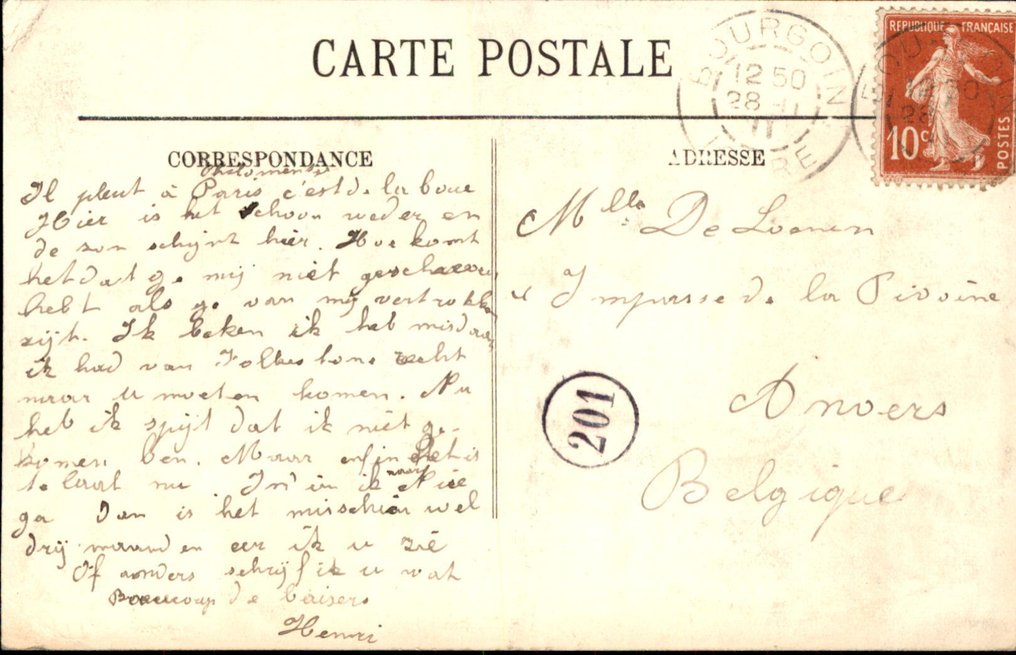 CARTE POSTALE
BOURGOIN
12 50
28 -11
11
ISERE
REPUBLIQUE FRANÇAISE
10c
POSTES
CORRESPONDANCE
ADRESSE
Il pleut à Paris c'est de la boue
Hier is het schoon weder en
de zon schijnt hier. Hoe komt
het dat ge mij niet geschreven
hebt als ge van mij vertrokken
zijt. Ik beken ik heb misdaan
ik had van Folkestone recht
naar u moeten komen. Nu
heb ik spijt dat ik niet ge-
komen ben. Maar enfin het is
te laat nu
naar
ga Dan is het misschien wel
drij maanden eer ik u zie
Of anders schrijf ik u wat
Beaucoup de baisers
Henri
Mlle De Loenen
Impasse de la Pivoine
Anvers
Belgique
201